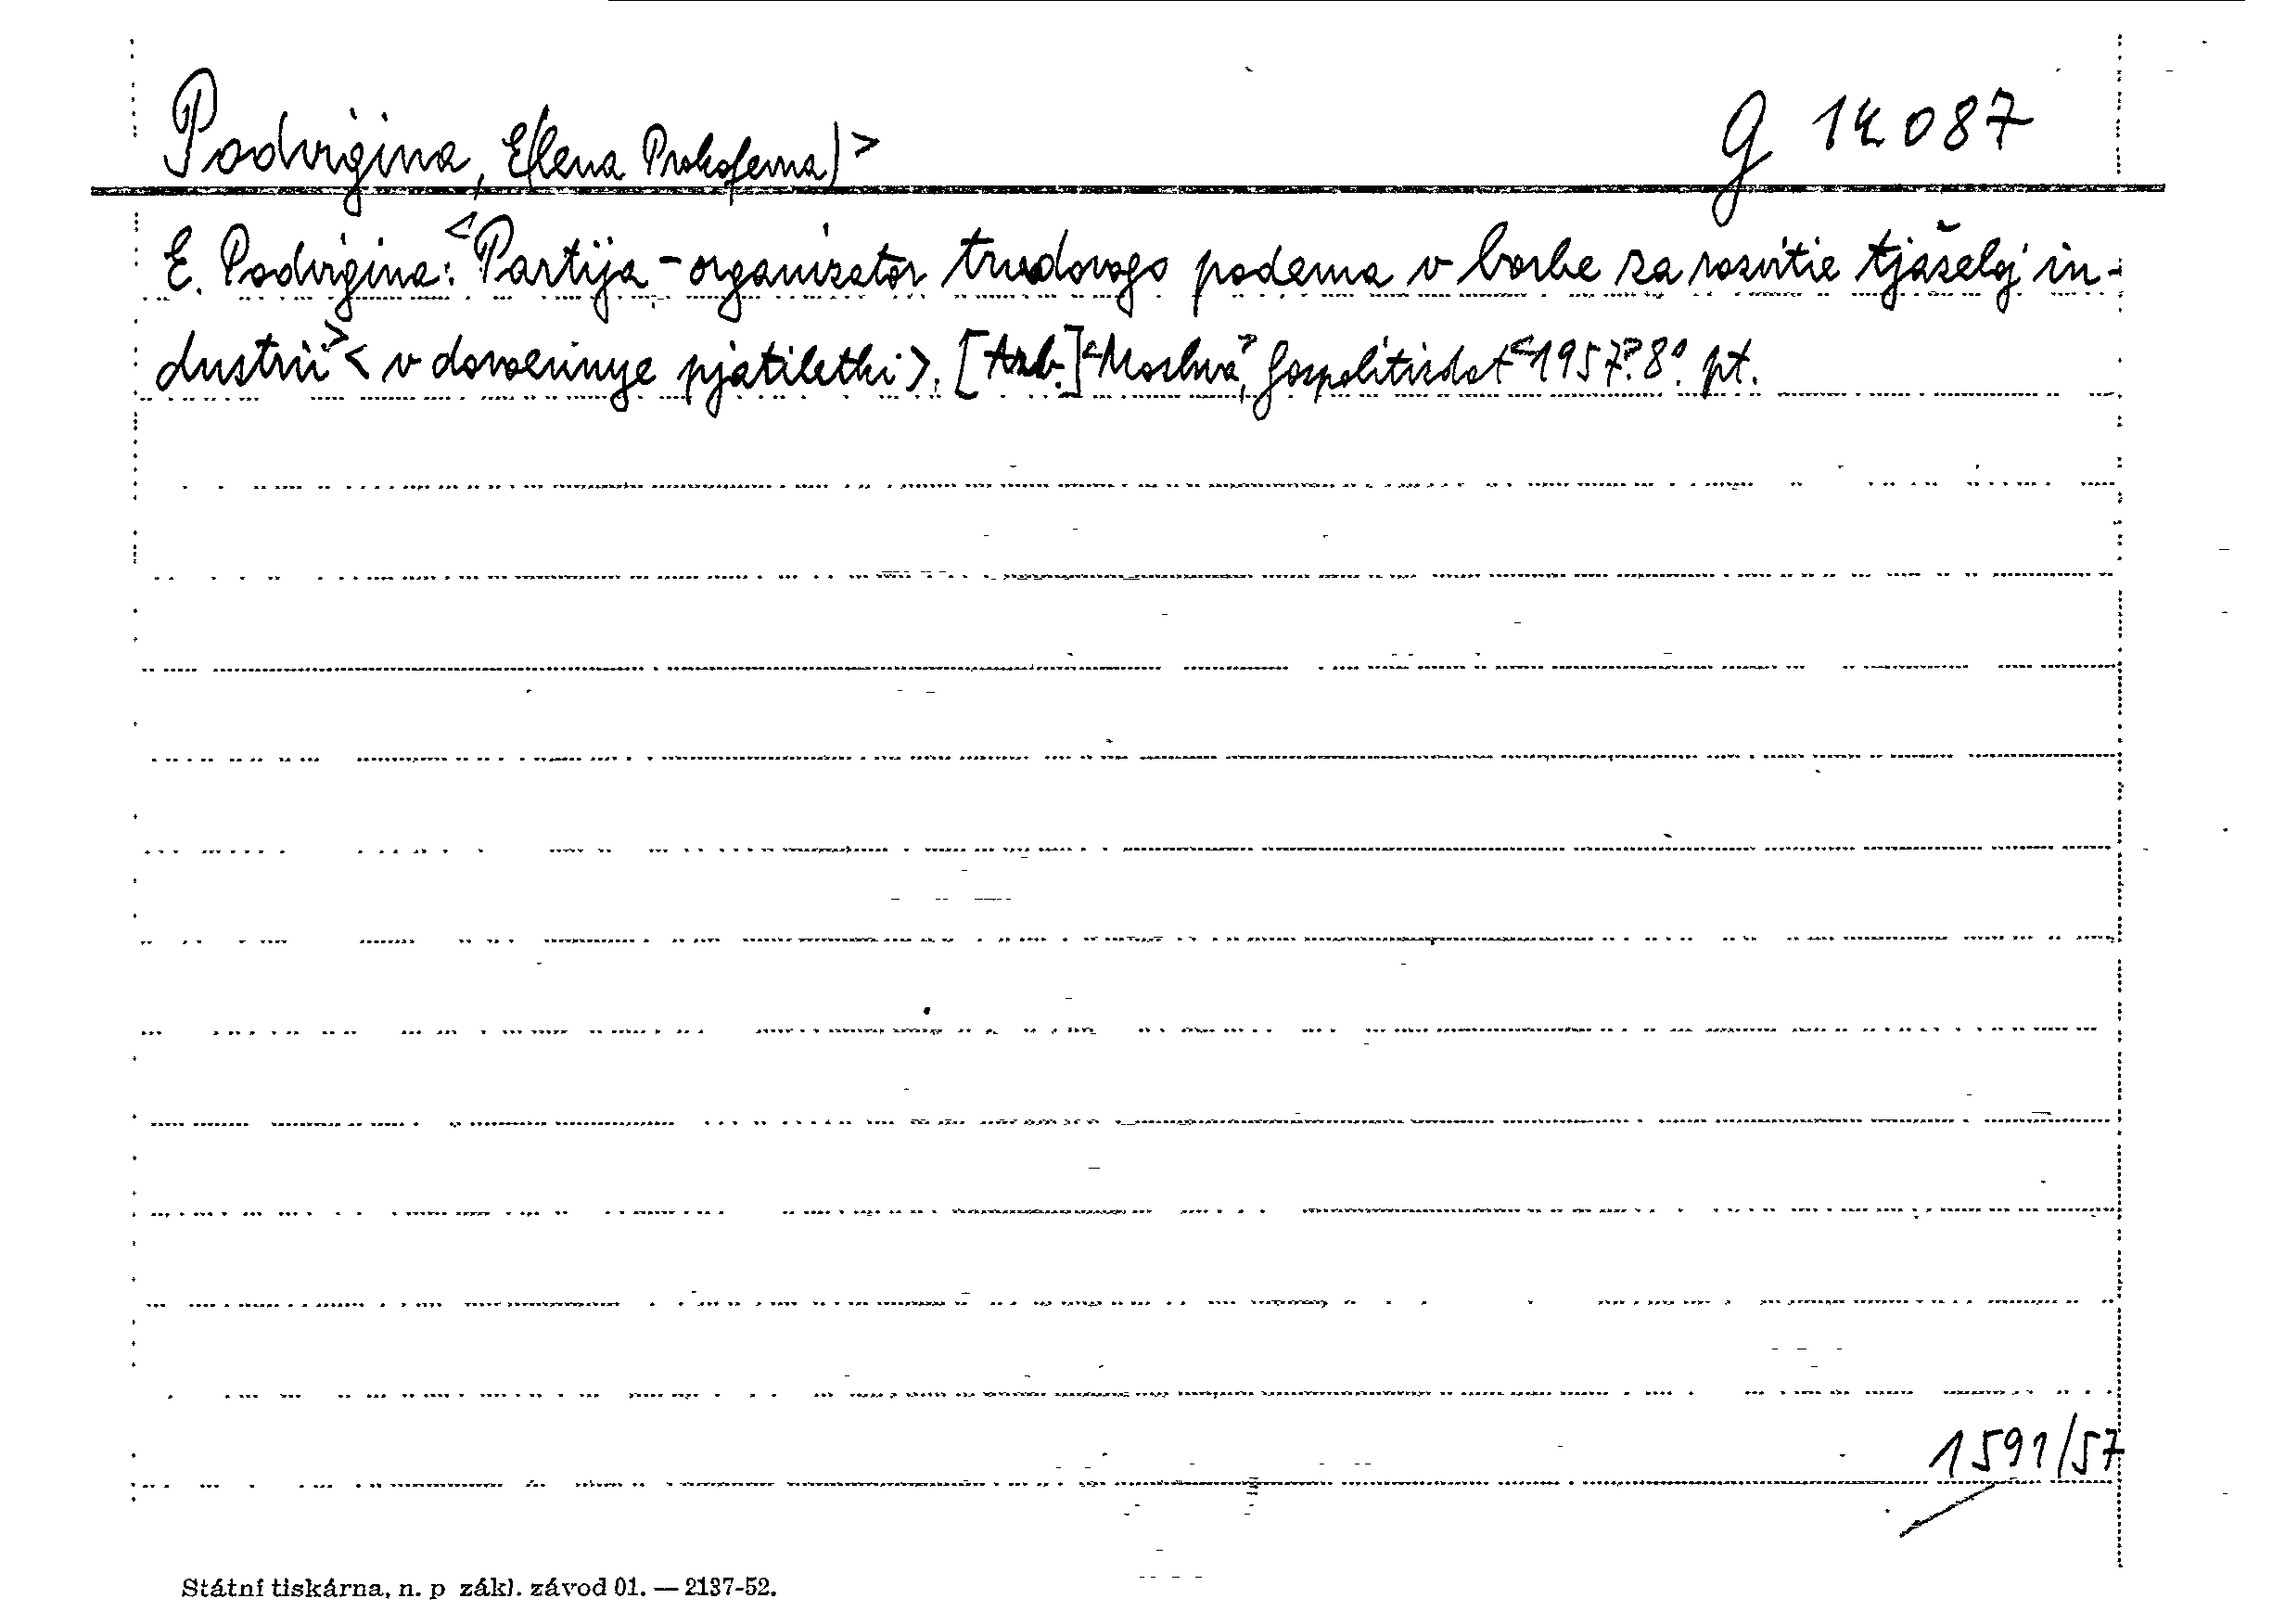 Podvigina, E(lena Prokofevna)> G 14087
E. Podvigina: <Partija - organizator trudovogo podema v borbe za rozvitie tjaželoj in-
dustrii> < v dovoennye pjatiletki>. [Azb.] <Moskva>, Gospolitizdat <1957>. 8°. pt.
1591/57
Státní tiskárna, n. p zákl. závod 01. — 2137-52.